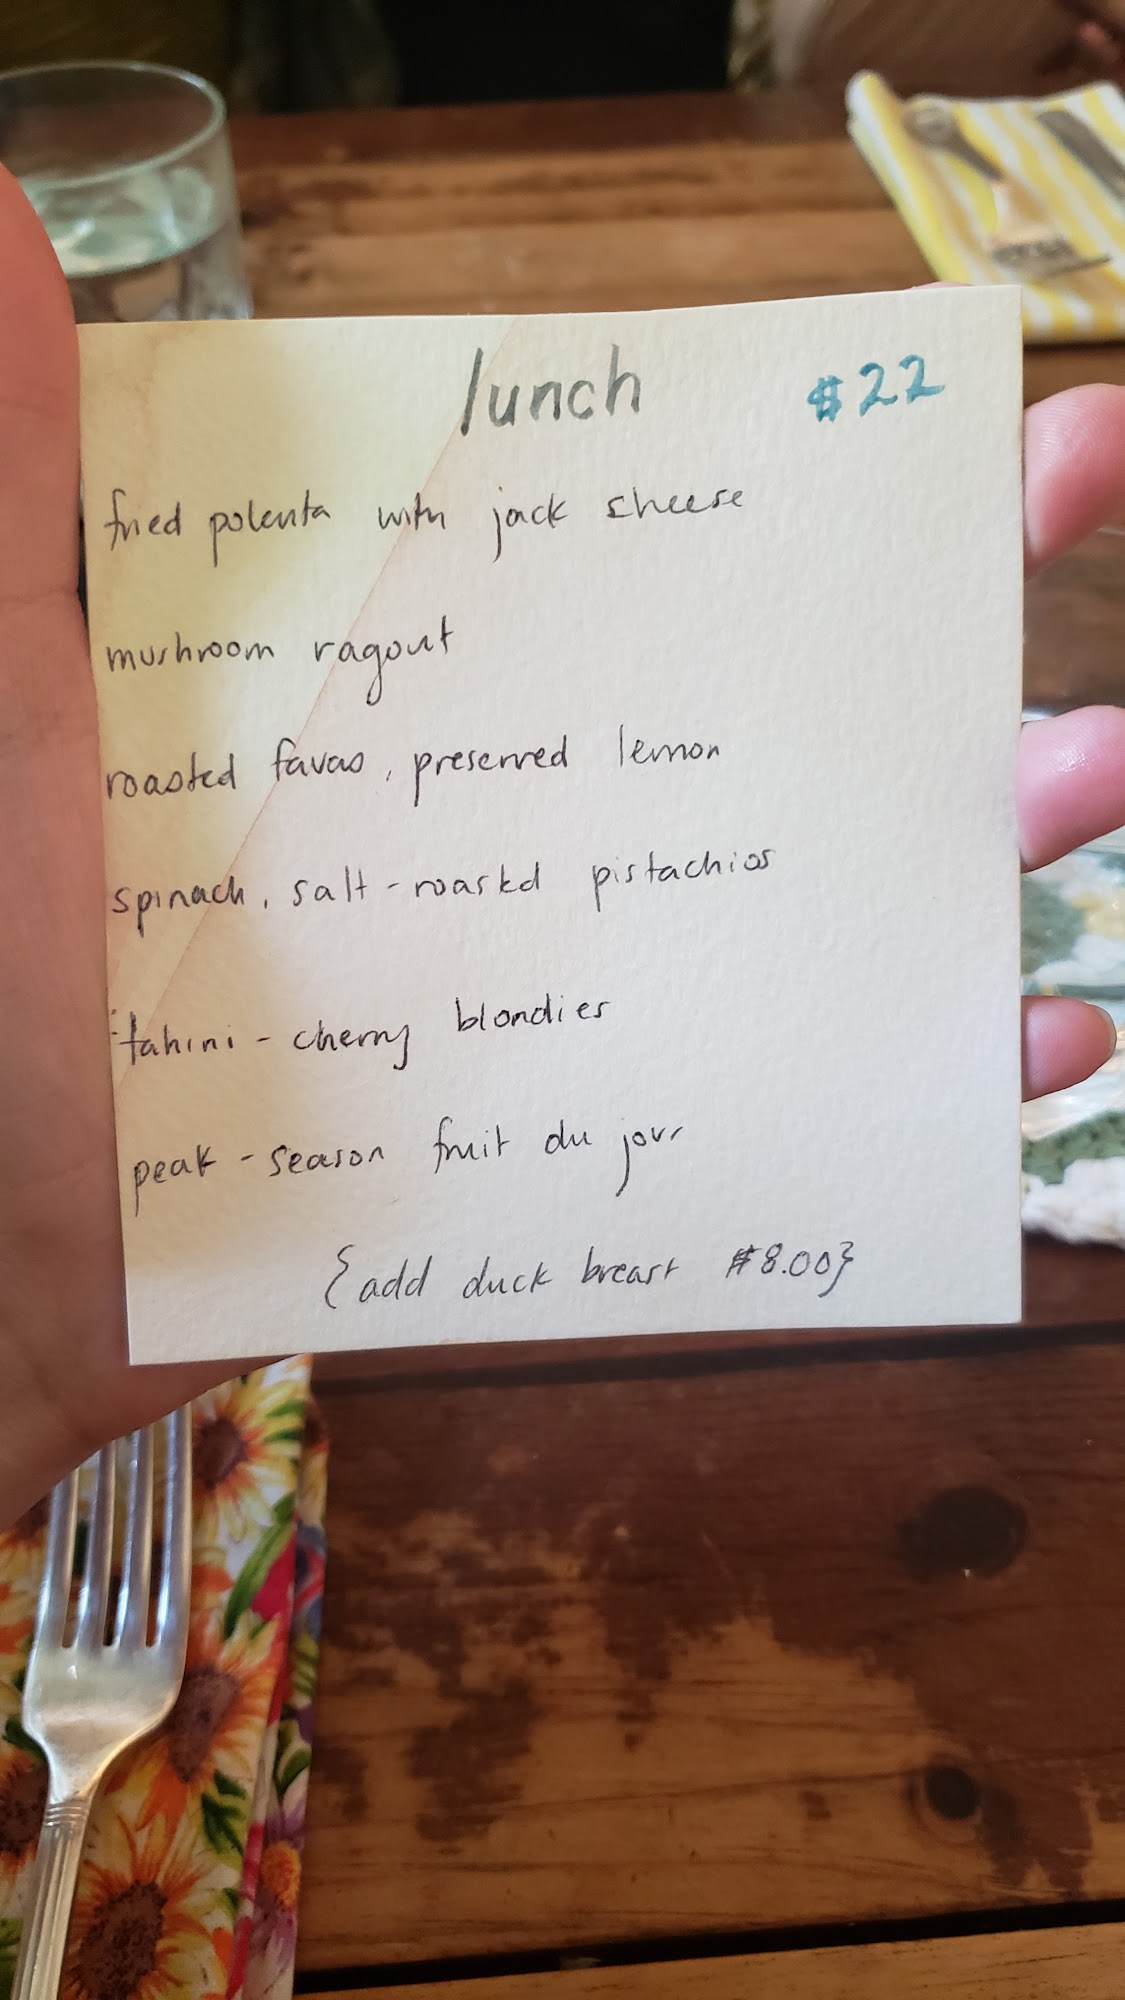 lunch $22
fried polenta with jack cheese
mushroom ragout
roasted favas, preserved lemon
spinach, salt-roasted pistachios
tahini-cherry blondies
peak-season fruit du jour
{add duck breast $8.00}